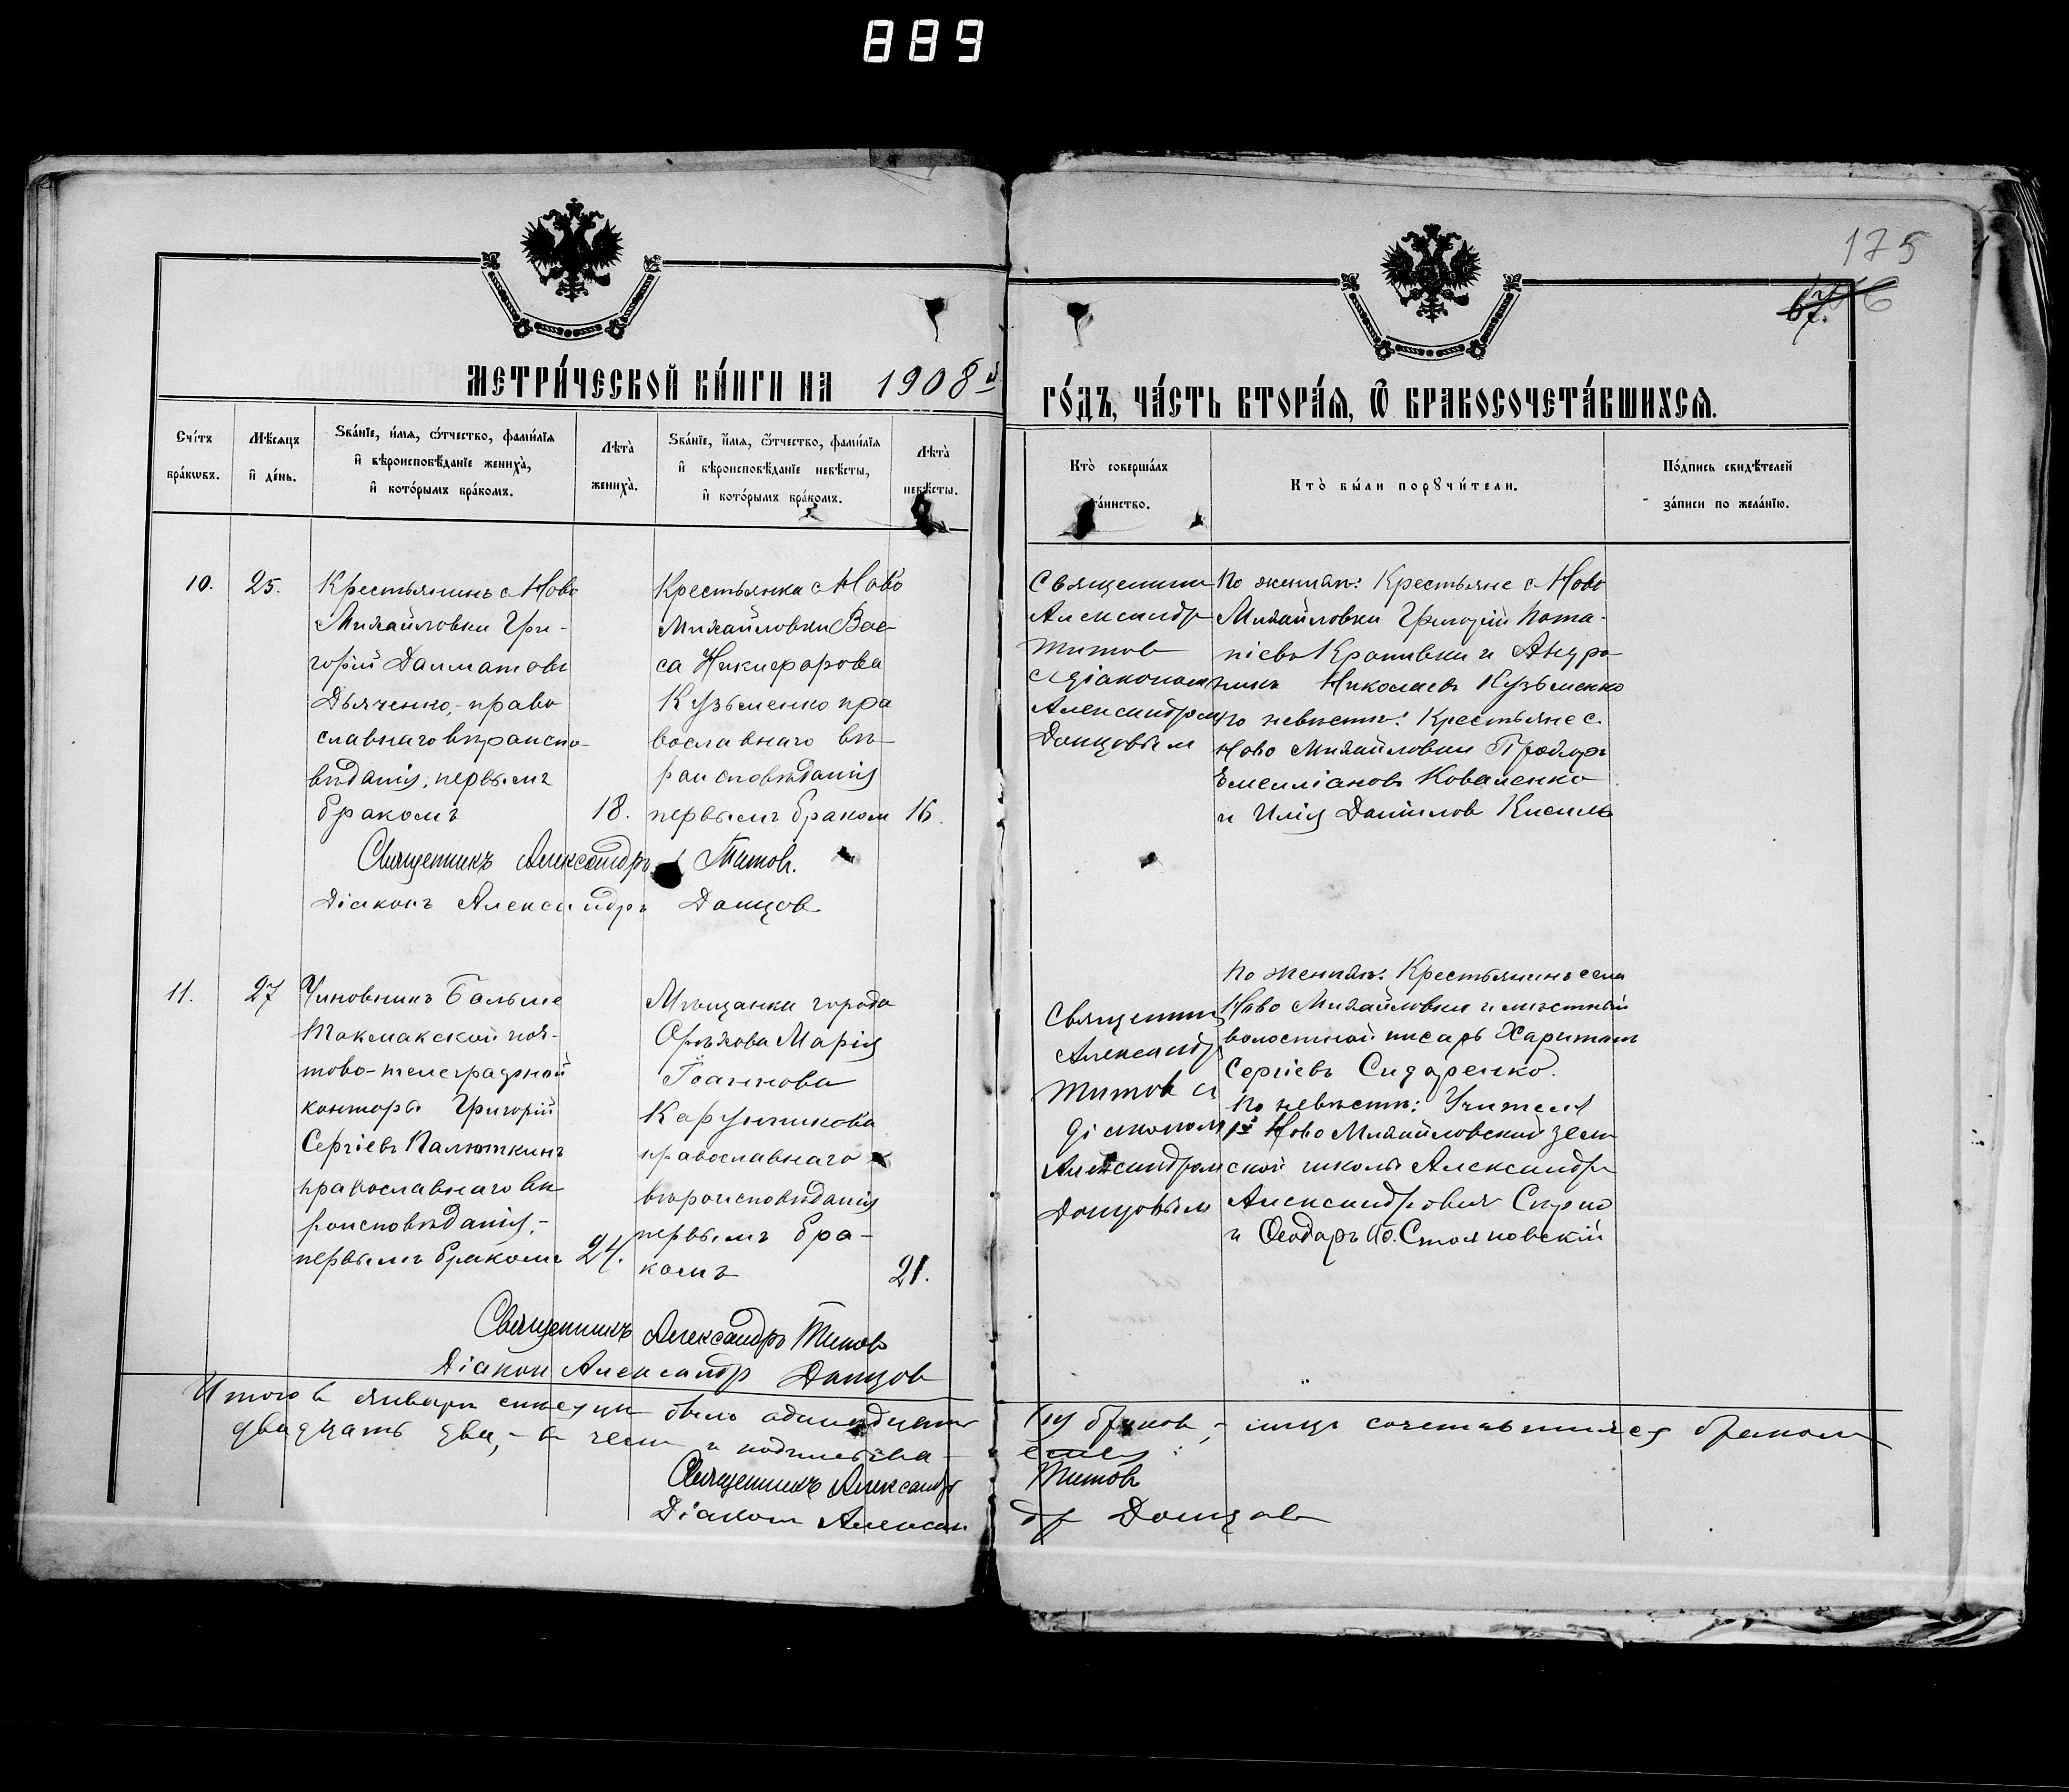 889
175
67.
МЕТРИ́ЧЕСКОЙ КНИ́ГИ НА 1908й
ГО́ДЪ, ЧА́СТЬ ВТОРА́Я, Ѽ БРАКОСОЧЕТА́ВШИХСЯ.
Сче́тъ бра́кѡвъ.
Мѣ́сяцъ и҆ де́нь.
Ѕва́нїе, и҆́мя, ѻ҆́тчество, фами́лїя
и҆ вѣроисповѣ́данїе жениха̀,
и҆ кото́рымъ бра́комъ.
Лѣта̀ жениха̀.
Ѕва́нїе, и҆́мя, ѻ҆́тчество, фами́лїя
и҆ вѣроисповѣ́данїе невѣ́сты,
и҆ кото́рымъ бра́комъ.
Лѣта̀ невѣ́сты.
Кто̀ соверша́лъ
та́инство.
Кто̀ бы́ли порꙋчи́тели.
По́дпись свидѣ́телей
за́писи по жела́нїю.
10.
25.
Крестьянинъ с Ново
Михайловки Гри-
горій Далматовъ
Дьяченко,- право
славнаго вѣроиспо-
вѣданія, первымъ
бракомъ
18.
Крестьянка с Ново
Михайловки Вас-
са Никифорова
Кузьменко пра
вославнаго вѣ-
роисповѣданія
первымъ браком
16.
Священник
Александр
Титов
с діаконом
Александром
Донцовым
По жених: Крестьяне с Ново
Михайловки Григорій Пота-
піевъ Кропивки и Андро
никъ Николаевъ Кузьменко
по невѣстѣ: Крестьяне с.
Ново Михайловки Прохоръ
Емелліановъ Коваленко
и Илія Даніилов Кисиль
Священникъ Александръ Титовъ.
Діаконъ Александръ Донцов
11.
27
Чиновникъ Больше
Токмакской поч-
тово-телеграфной
конторы Григорій
Сергіевъ Палюткинъ
православнаго вѣ
роисповѣданія,-
первымъ бракомъ
24.
Мѣщанка города
Орѣхова Марія
Іоаннова
православнаго
вѣроисповѣданія
первымъ бра-
комъ
21.
Священник
Александр
Титов с
діаконом
Александром
Донцовым
По жених: Крестьянинъ села
Ново Михайловки и мѣстный
волостной писарь Харитонъ
Сергіевъ Сидоренко.
По невѣстѣ: Учител
1й Ново Михайловской зем
ской школы Александръ
Александрович
и Ѳеодоръ Стояновскій
Священникъ Александръ Титовъ
Діакон Александр Донцов
Итого в январѣ мѣсяцѣ было одинадцать браков,- лицъ сочетавшихся браком
двадцать два,- в чем и подписью
Священникъ Александръ Титовъ
Діакон Александр Донцов